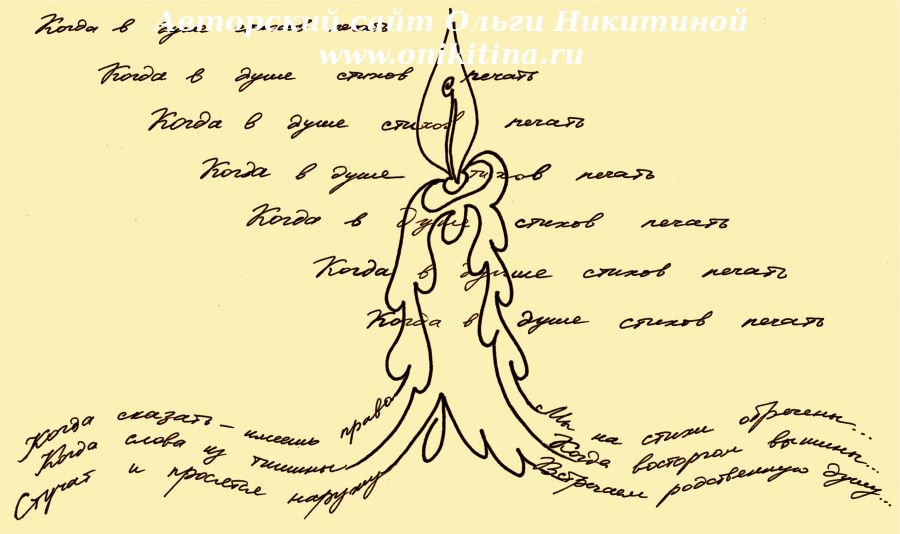 Авторский сайт Ольги Никитиной
www.onikitina.ru
Когда в душе стихов печать
Когда в душе стихов печать
Когда в душе стихов печать
Когда в душе стихов печать
Когда в душе стихов печать
Когда в душе стихов печать
Когда в душе стихов печать
Когда сказать – имеешь право
Когда слова из тишины
Стучат и просятся наружу
Мы на стихи обречены...
Когда восторгом вышины...
Встречаем родственную душу...